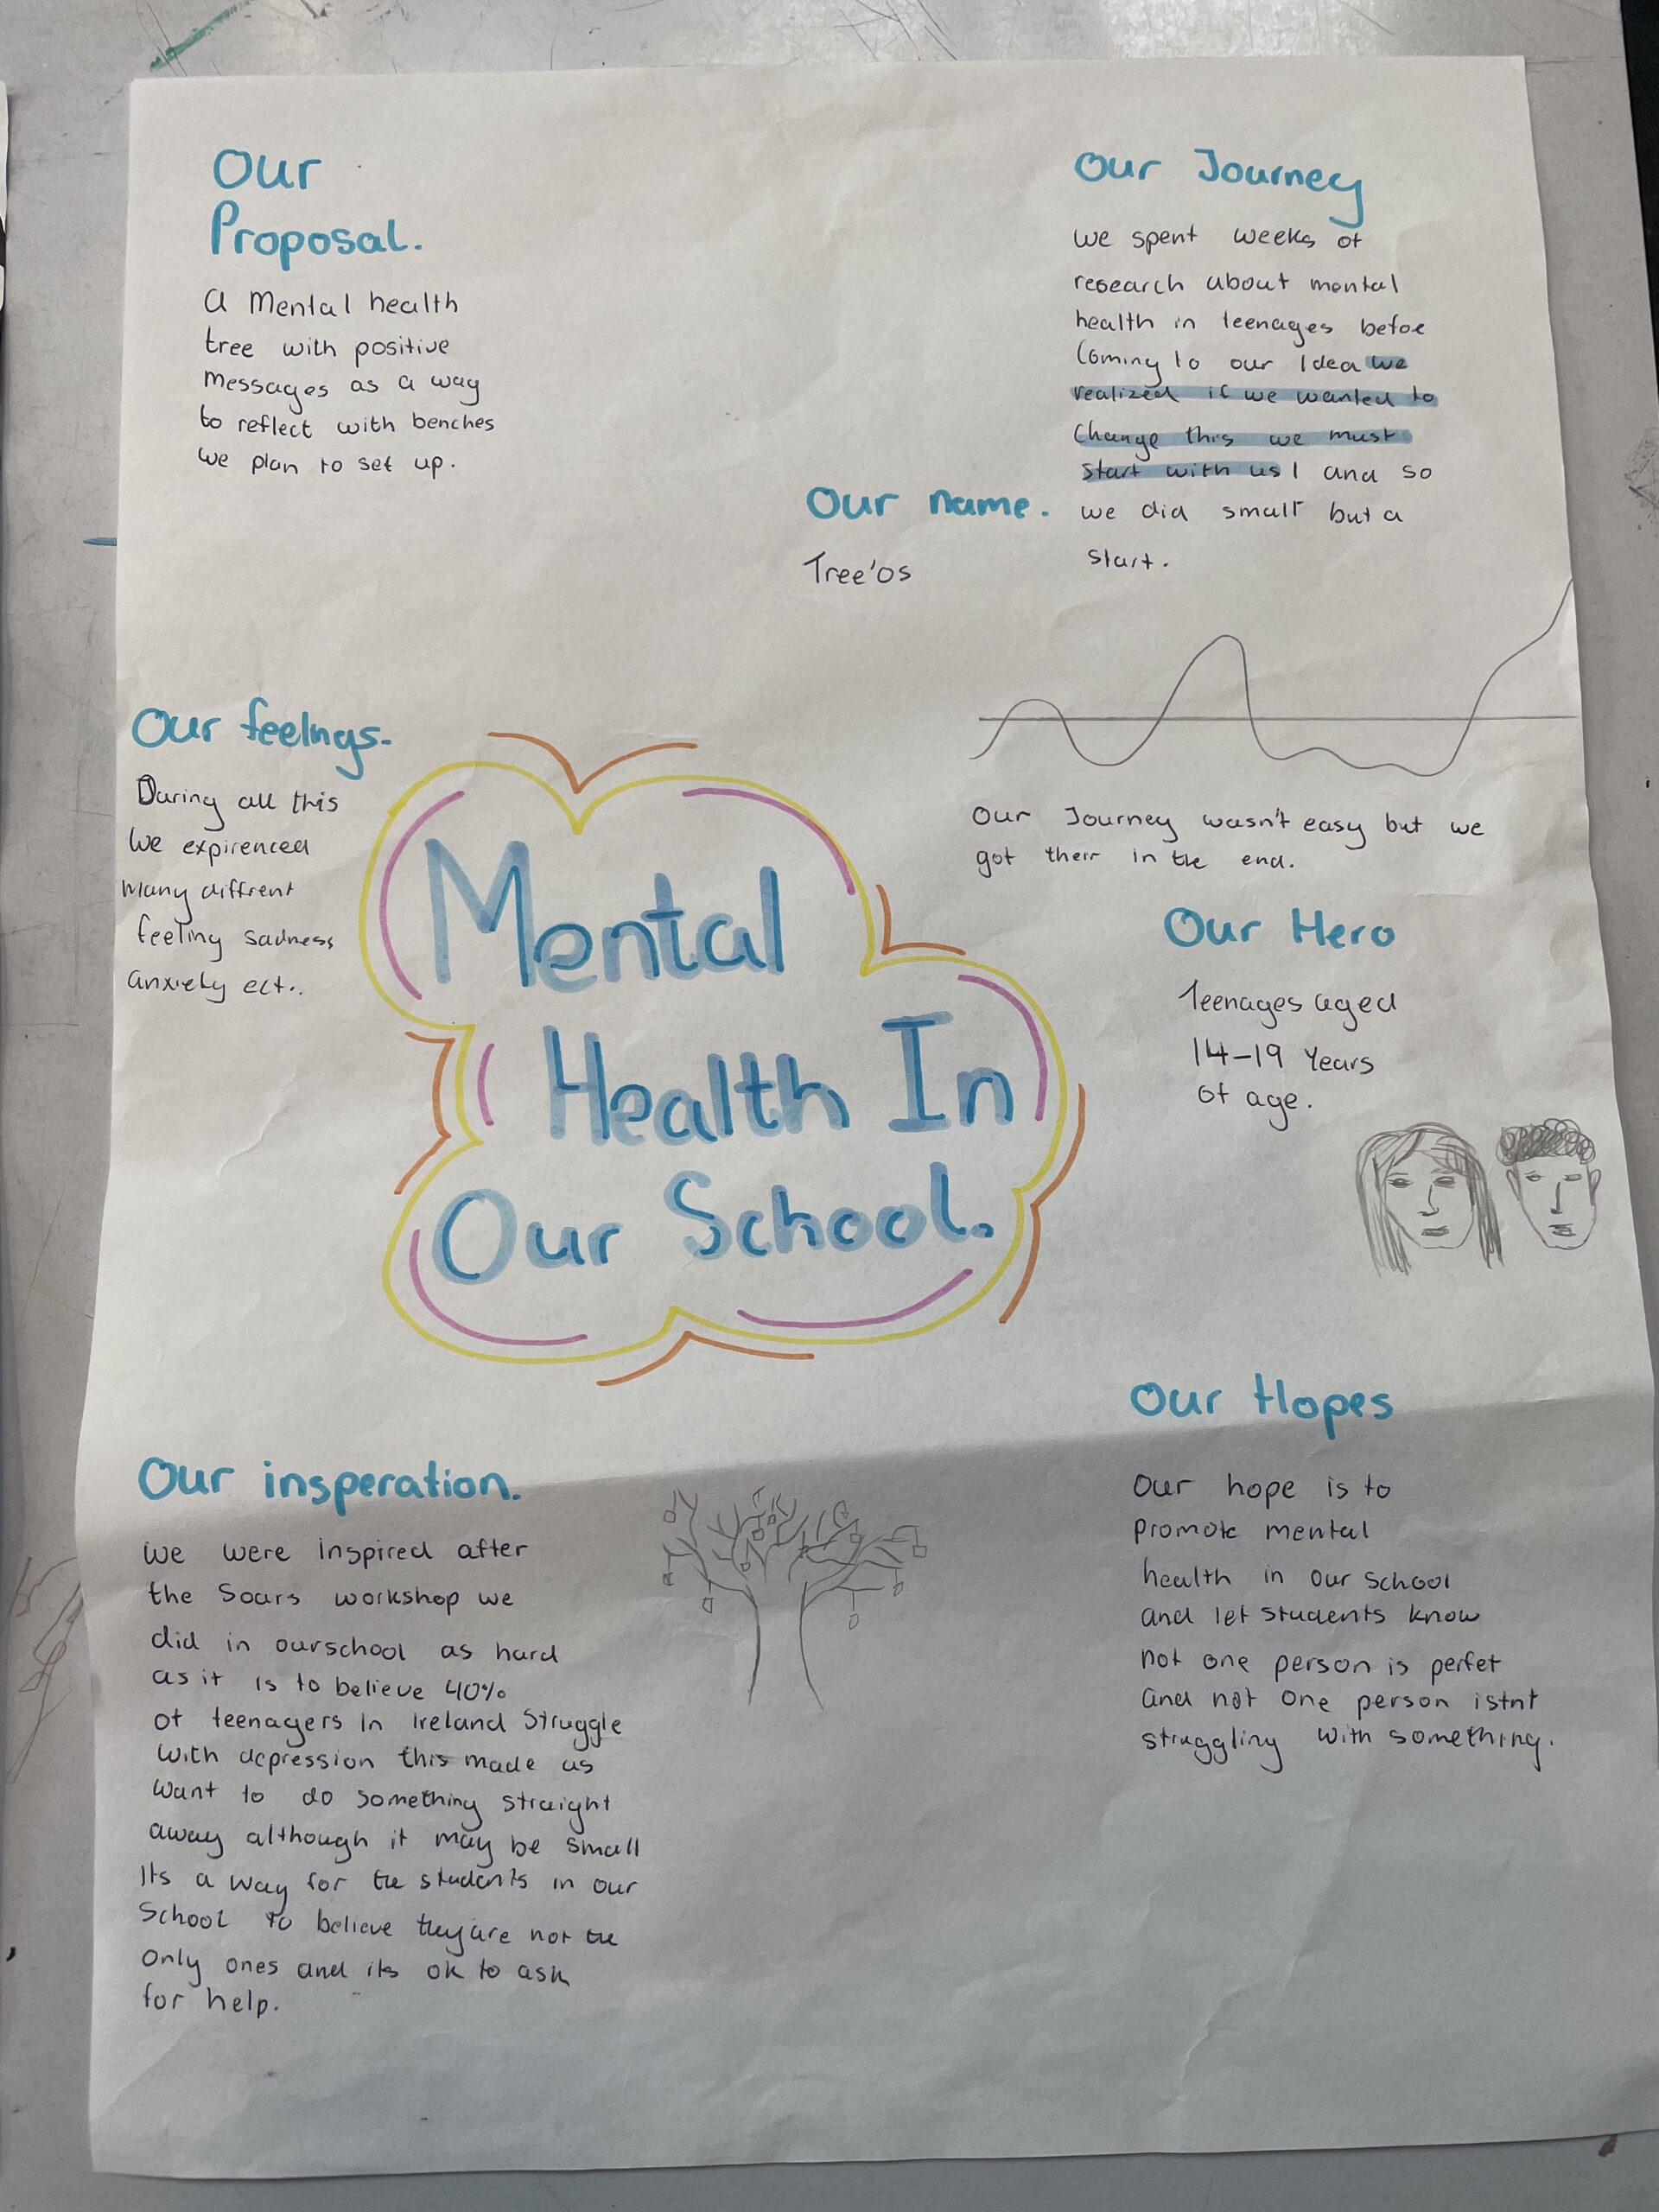 Our
Proposal.
A Mental health
tree with positive
messages as a way
to reflect with benches
we plan to set up.
Our Journey
We spent weeks of
research about mental
health in teenages befoe
Coming to our Idea we
realized if we wanted to
Change this we must
Start with us! and so
we did small but a
start.
Our name.
Tree'os
Our Journey wasn't easy but we
got their in the end.
Our feelings.
During all this
We expirenced
Many diffrent
feeling sadness
anxiety ect..
Mental
Health In
Our School.
Our Hero
Teenages aged
14-19 Years
of age.
Our Hopes
Our hope is to
promote mental
health in our school
and let students know
not one person is perfet
and not one person istnt
struggling with something.
Our insperation.
We were inspired after
the Soars workshop we
did in ourschool as hard
as it is to believe 40%
of teenagers in Ireland Struggle
with depression this made us
want to do something straight
away although it may be small
Its a way for the students in our
School to believe they are not the
only ones and its ok to ask
for help.